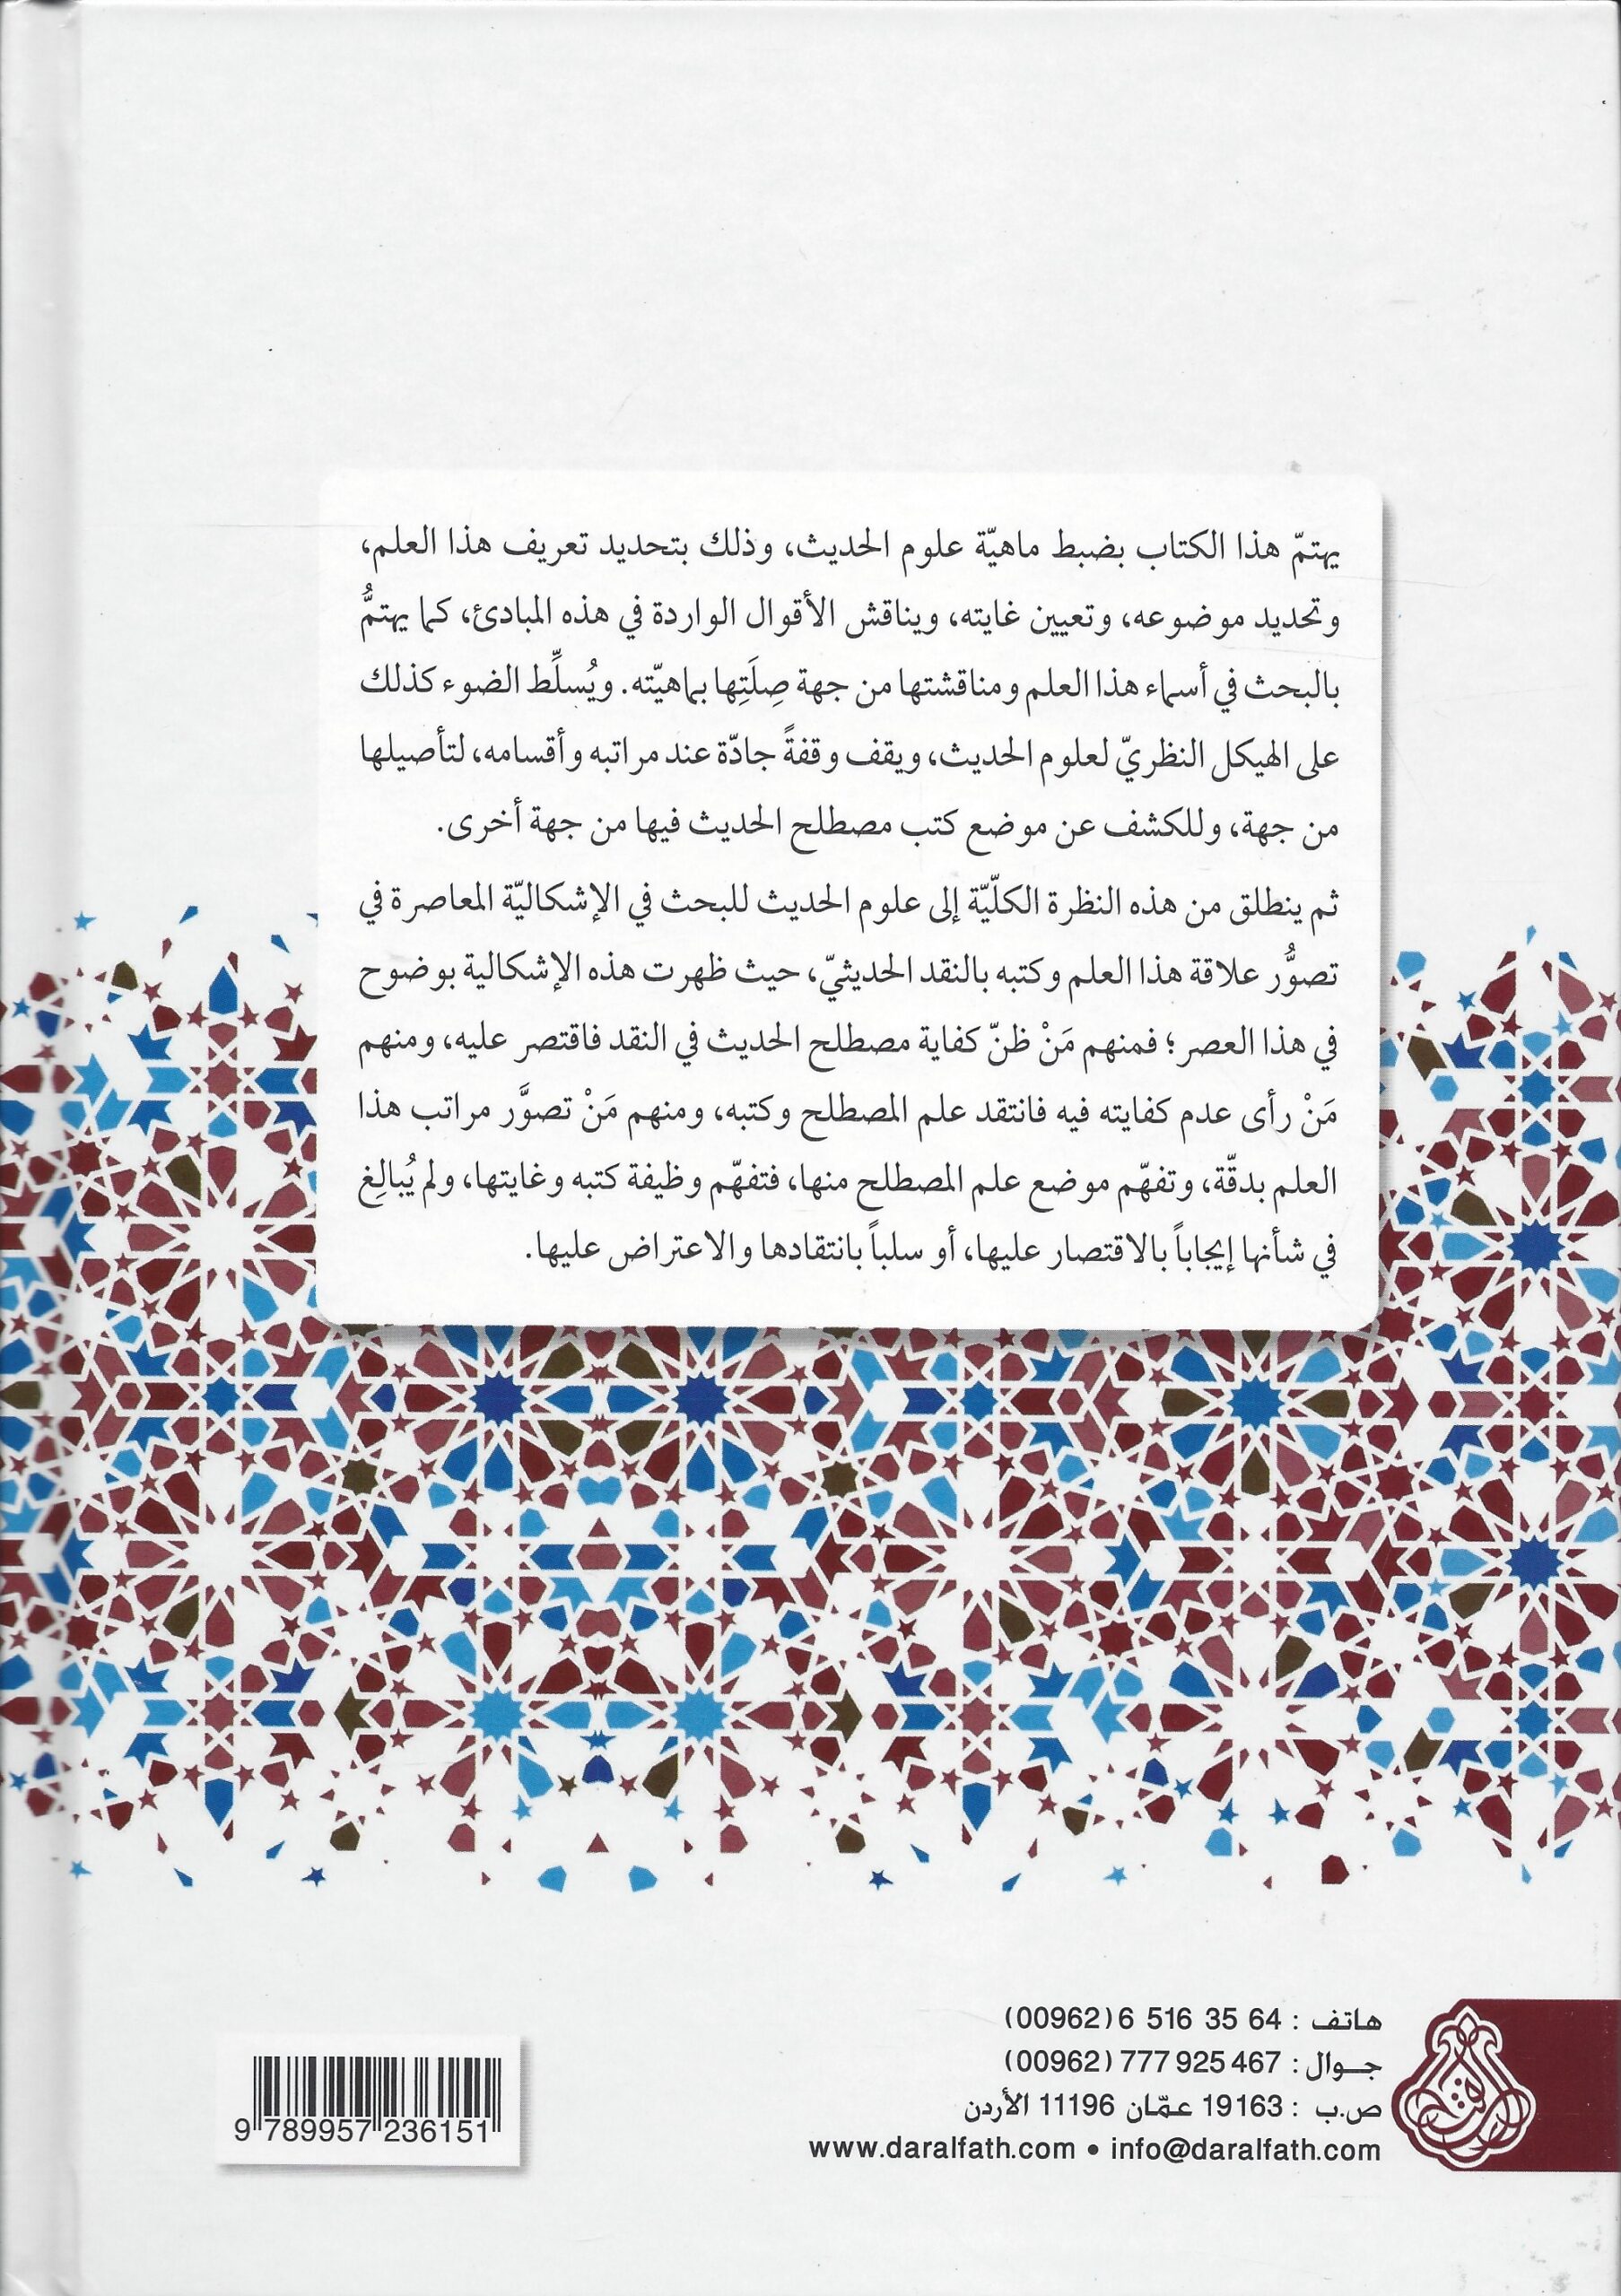 يهتمّ هذا الكتاب بضبط ماهيّة علوم الحديث، وذلك بتحديد تعريف هذا العلم،
وتحديد موضوعه، وتعيين غايته، ويناقش الأقوال الواردة في هذه المبادئ، كما يهتمُّ
بالبحث في أسماء هذا العلم ومناقشتها من جهة صِلَتِها بماهيّته. ويُسلِّط الضوء كذلك
على الهيكل النظريّ لعلوم الحديث، ويقف وقفةً جادّة عند مراتبه وأقسامه، لتأصيلها
من جهة، وللكشف عن موضع كتب مصطلح الحديث فيها من جهة أخرى.
ثم ينطلق من هذه النظرة الكلّيّة إلى علوم الحديث للبحث في الإشكاليّة المعاصرة في
تصوُّر علاقة هذا العلم وكتبه بالنقد الحديثيّ، حيث ظهرت هذه الإشكالية بوضوح
في هذا العصر؛ فمنهم مَنْ ظنّ كفاية مصطلح الحديث في النقد فاقتصر عليه، ومنهم
مَنْ رأى عدم كفايته فيه فانتقد علم المصطلح وكتبه، ومنهم مَنْ تصوَّر مراتب هذا
العلم بدقّة، وتفهّم موضع علم المصطلح منها، فتفهّم وظيفة كتبه وغايتها، ولم يُبالِغ
في شأنها إيجاباً بالاقتصار عليها، أو سلباً بانتقادها والاعتراض عليها.
هاتف : 64 35 516 6(00962)
جوال : 467 925 777(00962)
ص.ب : 19163 عمّان 11196 الأردن
www.daralfath.com • info@daralfath.com
الفتح
9 789957 236151